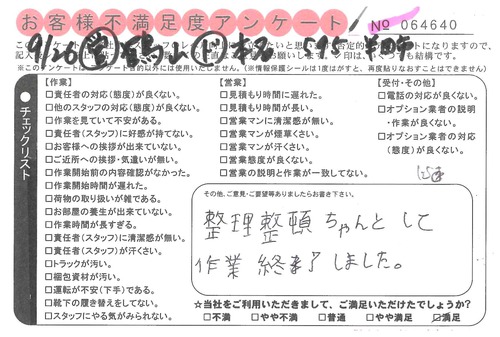 お客様不満足度アンケート
No 064640
【作業】
□責任者の対応(態度)が良くない。
□他のスタッフの対応(態度)が良くない。
□作業を見ていて不安がある。
□責任者(スタッフ)に好感が持てない。
□お客様への挨拶が出来ていない。
□ご近所への挨拶・気遣いが無い。
□作業開始前の内容確認がなかった。
□作業開始時間が遅れた。
□荷物の取り扱いが雑である。
□お部屋の養生が出来ていない。
□作業時間が長すぎる。
□責任者(スタッフ)に清潔感が無い。
□責任者(スタッフ)が汗くさい。
□トラックが汚い。
□梱包資材が汚い。
□運転が不安(下手)である。
□靴下の履き替えをしてない。
□スタッフにやる気がみられない。
チェックリスト
【営業】
□見積もり時間に遅れた。
□見積もり時間が長い。
□営業マンに清潔感が無い。
□営業マンが煙草くさい。
□営業マンが汗くさい。
□営業態度が良くない。
□営業の説明と作業が一致してない。
【受付・その他】
□電話の対応が良くない。
□オプション業者の説明
・作業が良くない。
□オプション業者の対応
(態度)が良くない。
その他、ご意見・ご要望等ありましたらお書き下さい。
整理整頓ちゃんとして
作業終了しました。
☆当社をご利用いただきまして、ご満足いただけたでしょうか?
□不満 □やや不満 □普通 □やや満足 ☑満足